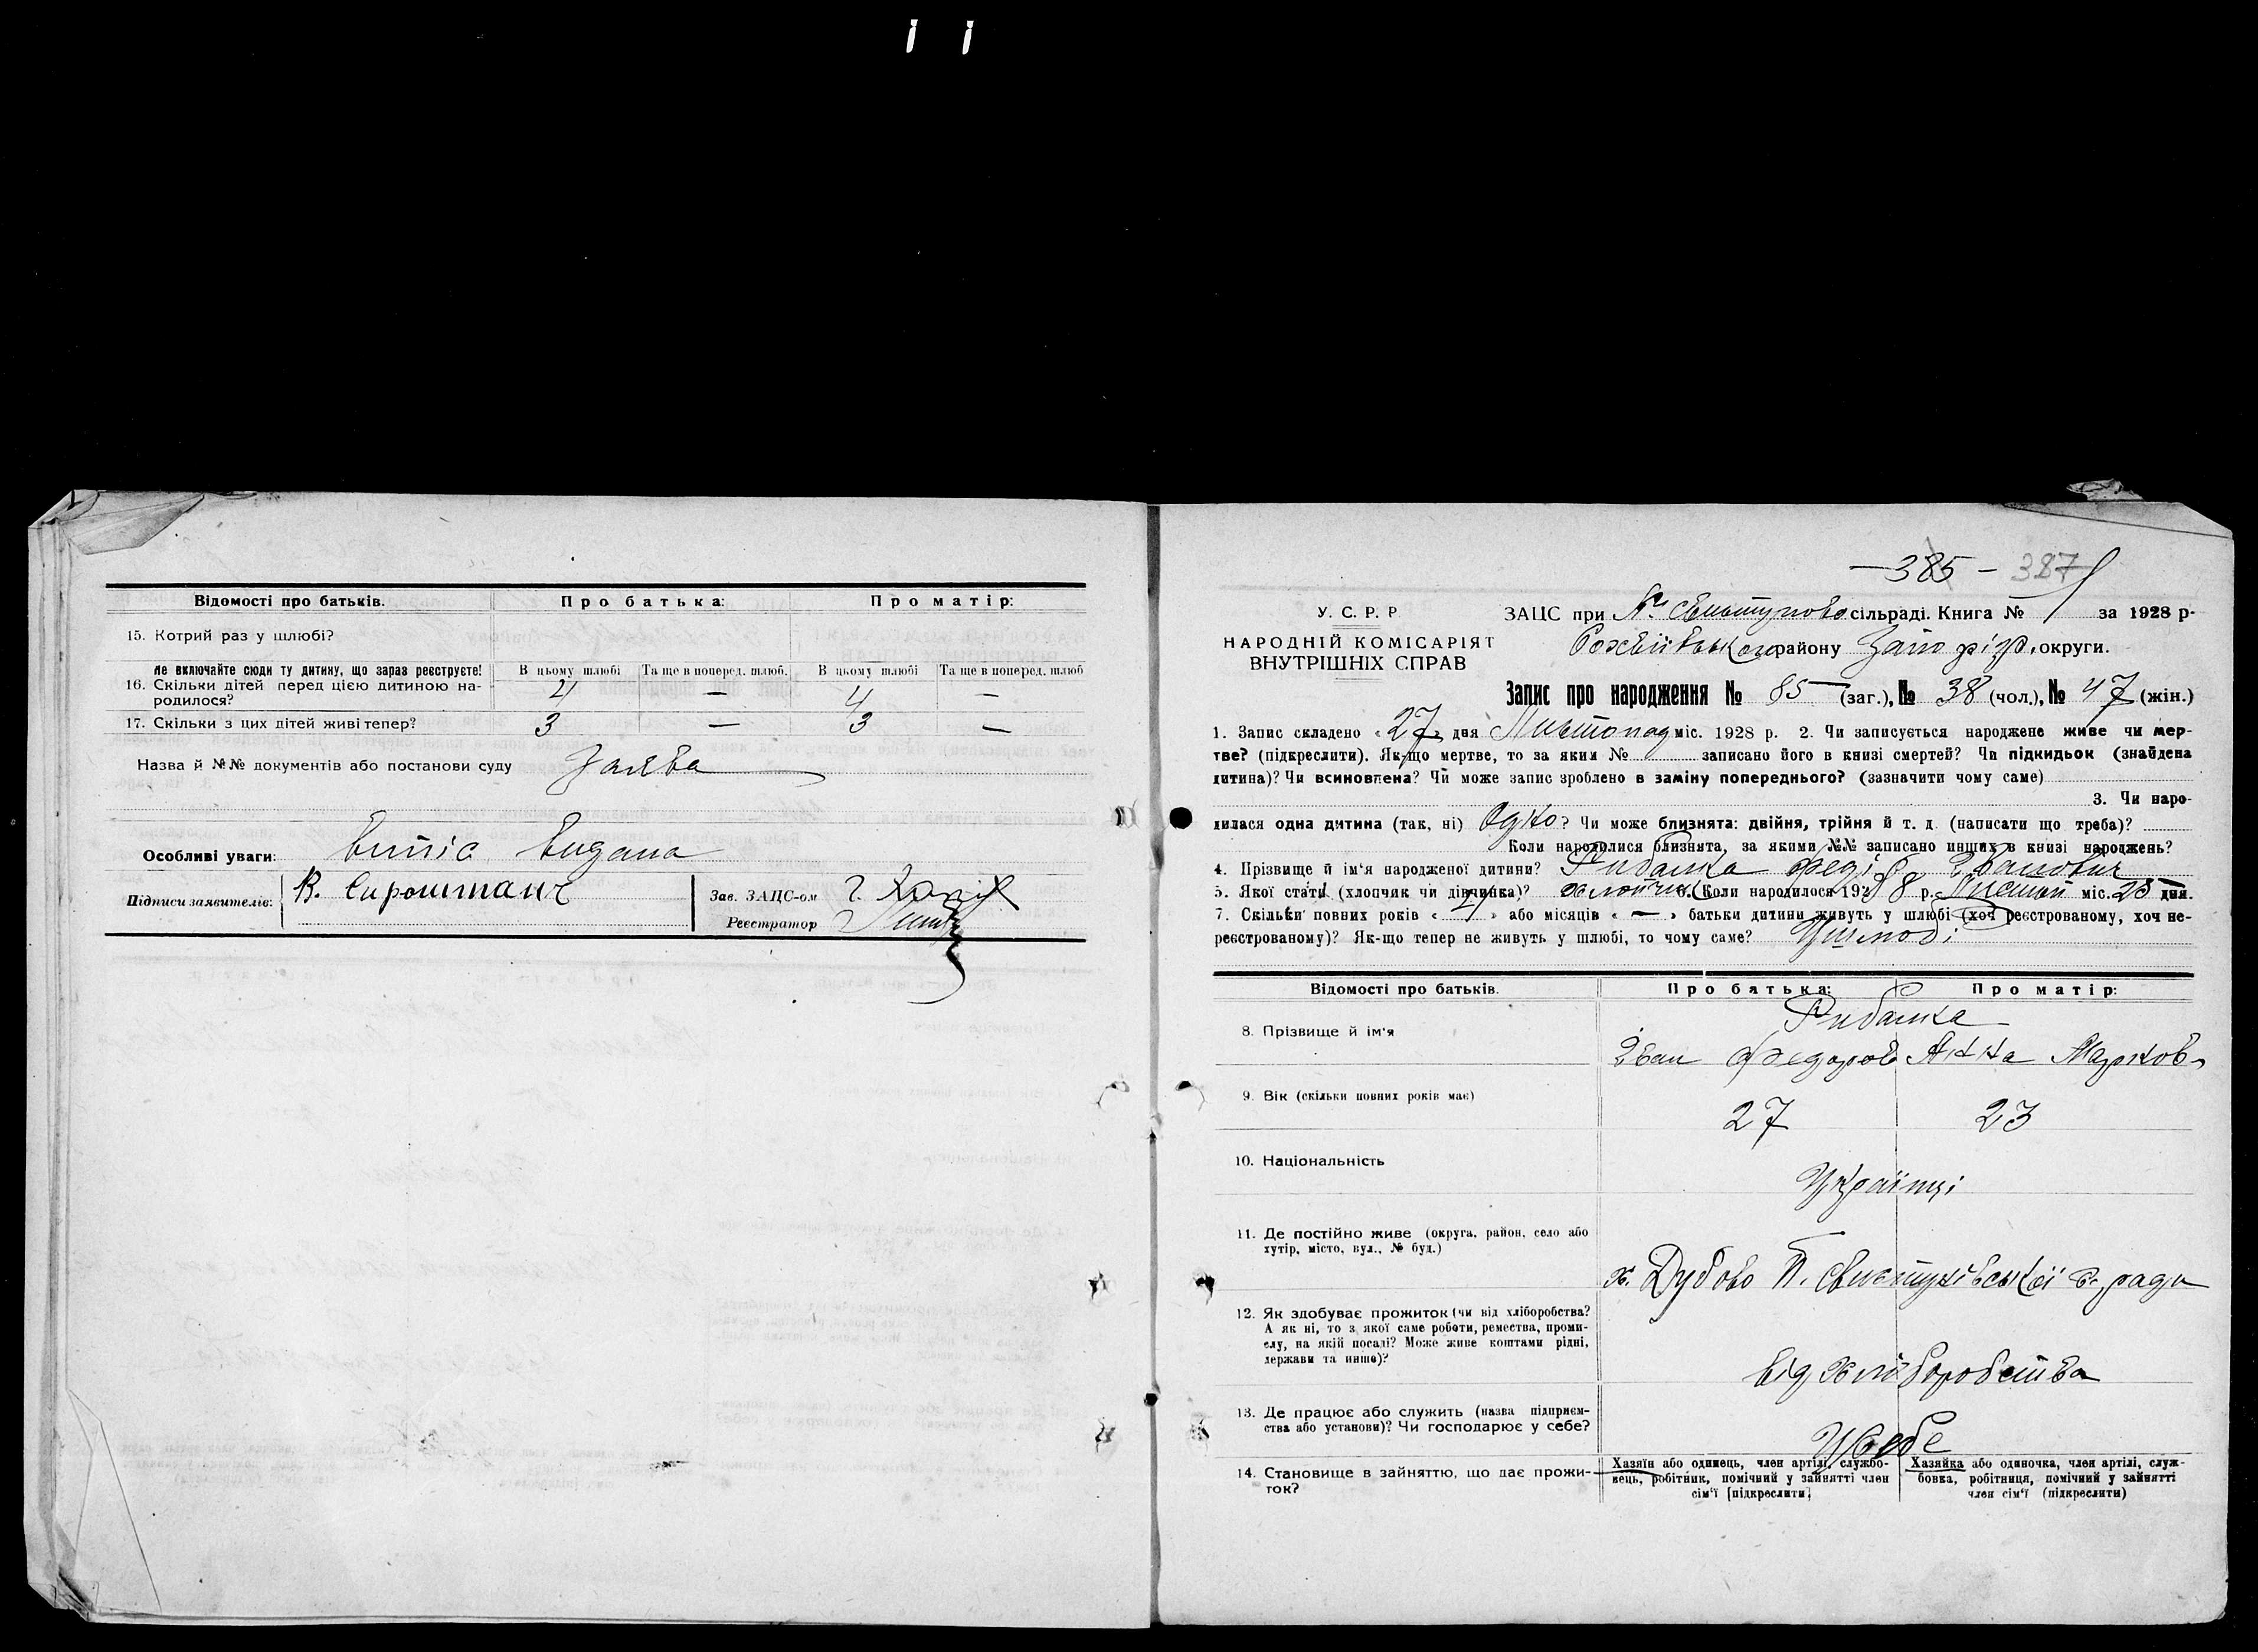 Відомості про батьків. Про батька: Про матір:
15. Котрий раз у шлюбі?
Не включайте сюди ту дитину, що зараз реєструєте! В цьому шлюбі Та ще в поперед. шлюб. В цьому шлюбі Та ще в поперед. шлюб
16. Скільки дітей перед цією дитиною на-
родилося? 4 — 4 —
17. Скільки з цих дітей живі тепер? 3 — 3 —
Назва й №№ документів або постанови суду Заява
Особливі уваги: Випис видана
Підписи заявителів: В. Сироштан Зав. ЗАЦС-ом
Реєстратор
—385— 387
У. С. Р. Р
НАРОДНІЙ КОМІСАРІЯТ
ВНУТРІШНІХ СПРАВ
ЗАЦС при сільраді. Книга № за 1928 р-
району Запоріз. округи.
Запис про народження № 85 (заг.), № 38 (чол.), № 47 (жін.)
1. Запис складено «27» дня Листопад міс. 1928 р. 2. Чи записується народжене живе чи мер-
тве? (підкреслити). Як-що мертве, то за яким № записано його в книзі смертей? Чи підкидьок (знайдена
дитина)? Чи всиновлена? Чи може запис зроблено в заміну попереднього? (зазначити чому саме)
3. Чи наро-
дилася одна дитина (так, ні) Одно? Чи може близнята: двійня, трійня й т. д. (написати що треба)?
Коли народилися близнята, за якими №№ записано инших в книзі народжень?
4. Прізвище й ім'я народженої дитини? Рибалка Федір Іванович
5. Якої статі (хлопчик чи дівчинка)? хлопчик 6. Коли народилося 1928 р. Листоп міс. 25 дня.
7. Скільки повних років « » або місяців « — » батьки дитини живуть у шлюбі (хоч реєстрованому, хоч не-
реєстрованому)? Як-що тепер не живуть у шлюбі, то чому саме? У шлюбі
Відомості про батьків. Про батька: Про матір:
Рибалка
8. Прізвище й ім'я Іван Федоров Анна Марков
9. Вік (скільки повних років має) 27 23
10. Національність Українці
11. Де постійно живе (округа, район, село або
хутір, місто, вул., № буд.) х. Дубово П. Свистунівської с. ради
12. Як здобуває прожиток (чи від хліборобства?
А як ні, то з якої саме роботи, ремества, проми-
слу, на якій посаді? Може живе коштами рідні,
держави та инше)? від хліборобства
13. Де працює або служить (назва підприєм-
ства або установи)? Чи господарює у себе? У себе
14. Становище в зайняттю, що дає прожи-
ток?
Хазяїн або одинець, член артілі, службо-
вець, робітник, помічний у зайнятті член
сім'ї (підкреслити)
Хазяйка або одиночка, член артілі, служ-
бовка, робітниця, помічний у зайнятті
член сім'ї (підкреслити)